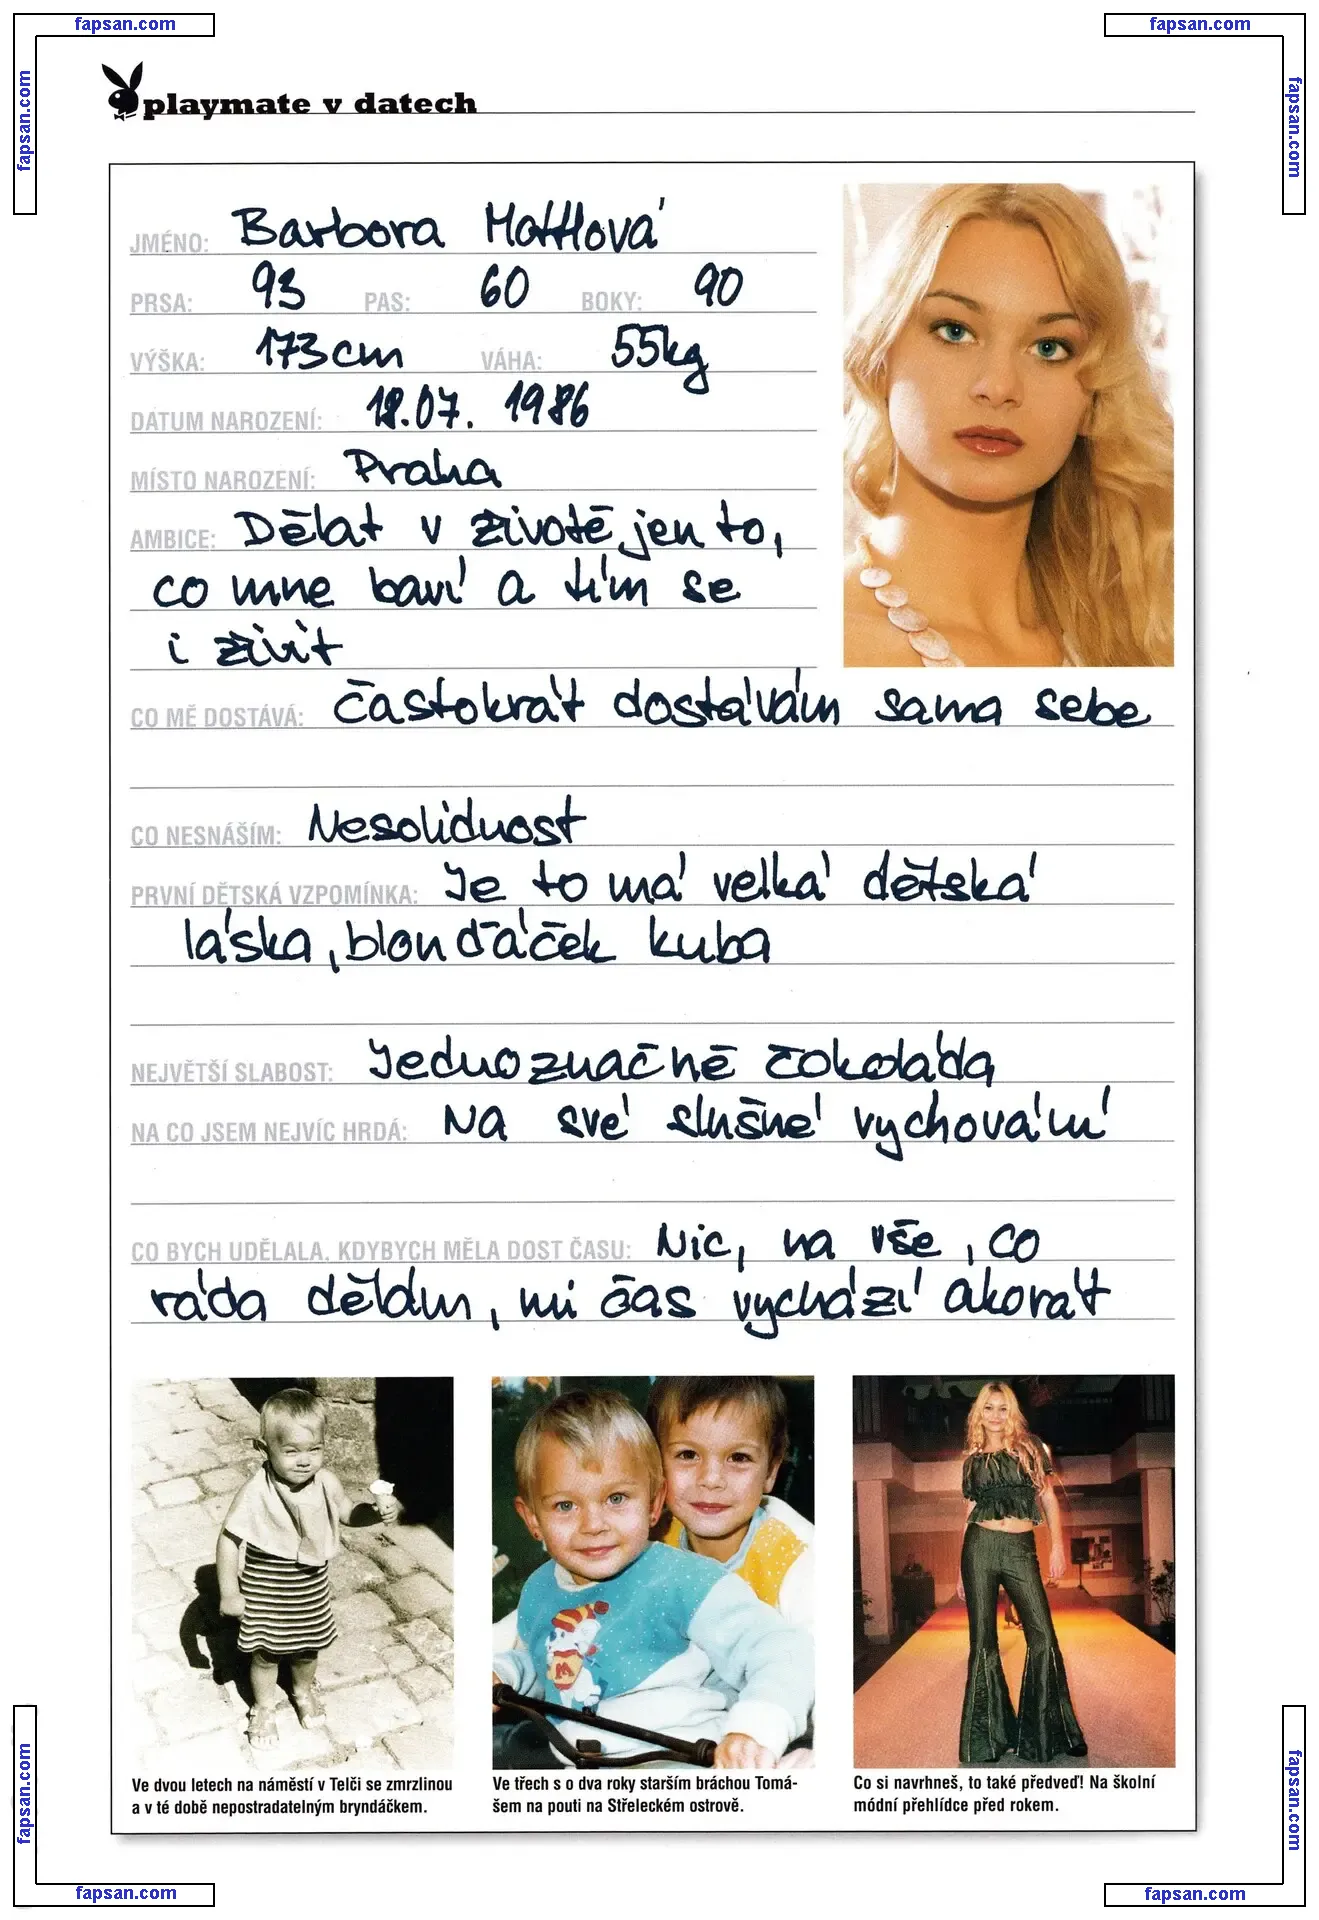 fapsan.com
fapsan.com
fapsan.com
fapsan.com
playmate v datech
JMÉNO: Barbora Mottlová
PRSA: 93 PAS: 60 BOKY: 90
VÝŠKA: 173cm VÁHA: 55kg
DATUM NAROZENÍ: 18.07. 1986
MÍSTO NAROZENÍ: Praha
AMBICE: Dělat v životě jen to,
co mne baví a tím se
i živit
CO MĚ DOSTÁVÁ: častokrát dostávám sama sebe
CO NESNÁŠÍM: Nesolidnost
PRVNÍ DĚTSKÁ VZPOMÍNKA: Je to má velká dětská
láska, blonďáček kuba
NEJVĚTŠÍ SLABOST: Jednoznačně čokoláda
NA CO JSEM NEJVÍC HRDÁ: Na své slušné vychování
CO BYCH UDĚLALA, KDYBYCH MĚLA DOST ČASU: Nic, na vše, co
ráda dělám, mi čas vychází akorát
M
Ve dvou letech na náměstí v Telči se zmrzlinou
a v té době nepostradatelným bryndáčkem.
Ve třech s o dva roky starším bráchou Tomá-
šem na pouti na Střeleckém ostrově.
Co si navrhneš, to také předveď! Na školní
módní přehlídce před rokem.
fapsan.com
fapsan.com
fapsan.com
fapsan.com